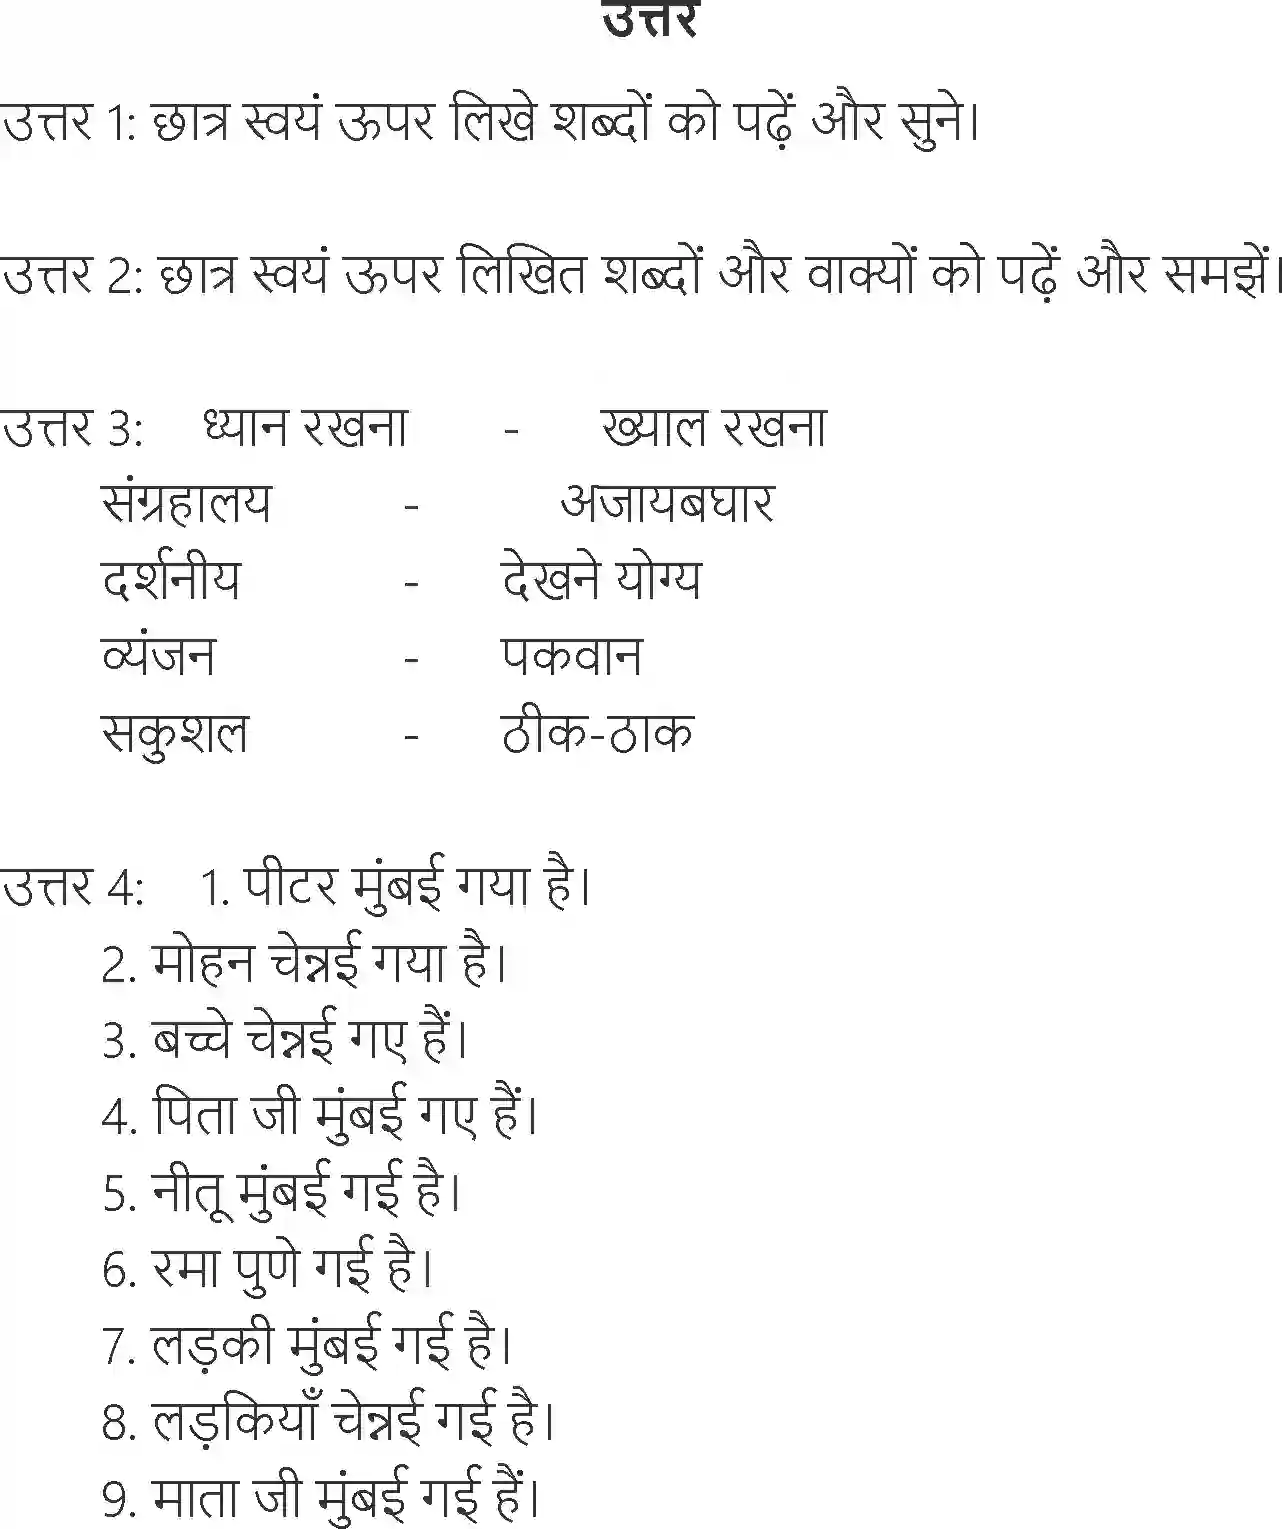 उत्तर
उत्तर 1: छात्र स्वयं ऊपर लिखे शब्दों को पढ़ें और सुने।
उत्तर 2: छात्र स्वयं ऊपर लिखित शब्दों और वाक्यों को पढ़ें और समझें।
उत्तर 3: ध्यान रखना - ख्याल रखना
संग्रहालय - अजायबघार
दर्शनीय - देखने योग्य
व्यंजन - पकवान
सकुशल - ठीक-ठाक
उत्तर 4: 1. पीटर मुंबई गया है।
2. मोहन चेन्नई गया है।
3. बच्चे चेन्नई गए हैं।
4. पिता जी मुंबई गए हैं।
5. नीतू मुंबई गई है।
6. रमा पुणे गई है।
7. लड़की मुंबई गई है।
8. लड़कियाँ चेन्नई गई है।
9. माता जी मुंबई गई हैं।